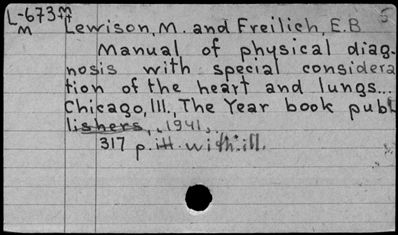 L-673m Lewison, M. and Freilich, E.B
m
Manual of physical diag-
nosis with special considera
tion of the heart and lungs...
Chicago, Ill., The Year book publ
lishers, 1941.
317 p. ill. with ill.